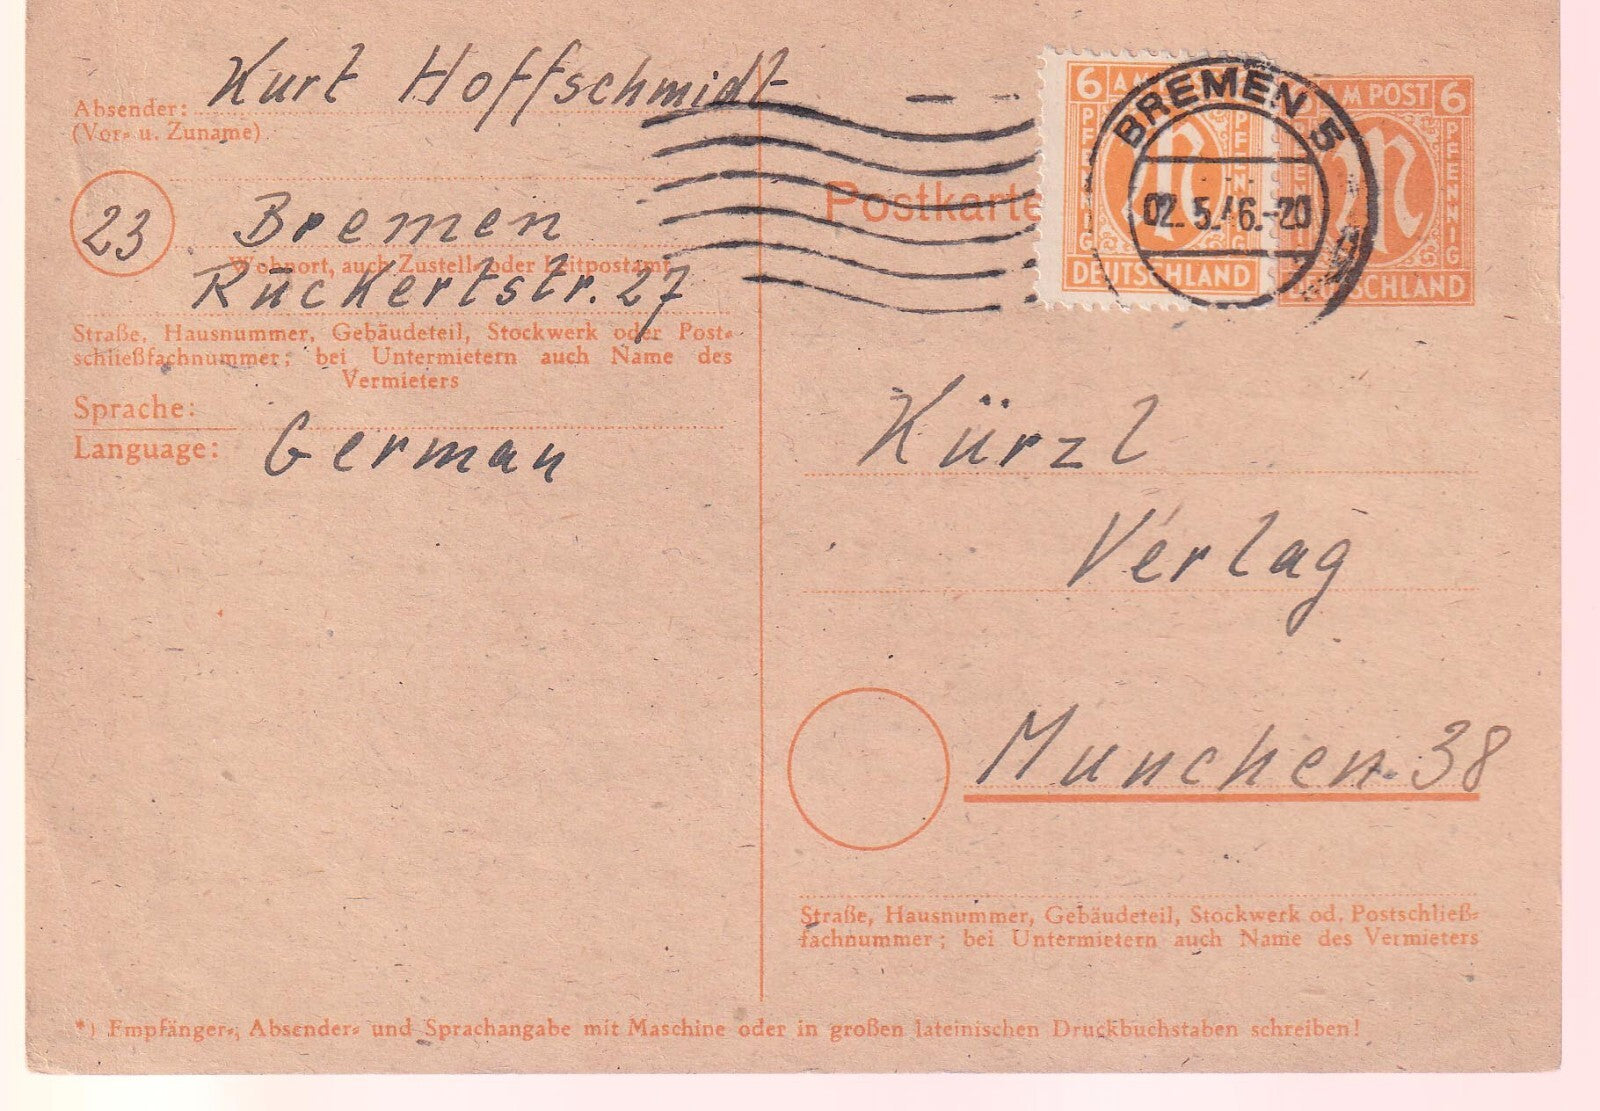 Kurt Hoffschmidt
Absender:
(Vor- u. Zuname)
23
Bremen
Wohnort, auch Zustell- oder Leitpostamt
Rückertstr. 27
Straße, Hausnummer, Gebäudeteil, Stockwerk oder Post-
schließfachnummer; bei Untermietern auch Name des
Vermieters
Sprache:
Language: German
Postkarte
6 AM
PFENNIG
DEUTSCHLAND
BREMEN 5
02.5.46.-20
AM POST 6
PFENNIG
DEUTSCHLAND
Kürzl
Verlag
Munchen. 38
Straße, Hausnummer, Gebäudeteil, Stockwerk od. Postschließ-
fachnummer; bei Untermietern auch Name des Vermieters
*) Empfänger-, Absender- und Sprachangabe mit Maschine oder in großen lateinischen Druckbuchstaben schreiben!